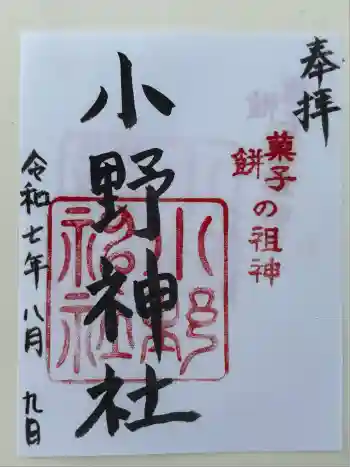 奉拝
菓子
餅
の祖神
小野神社
小野神社
令和七年八月九日